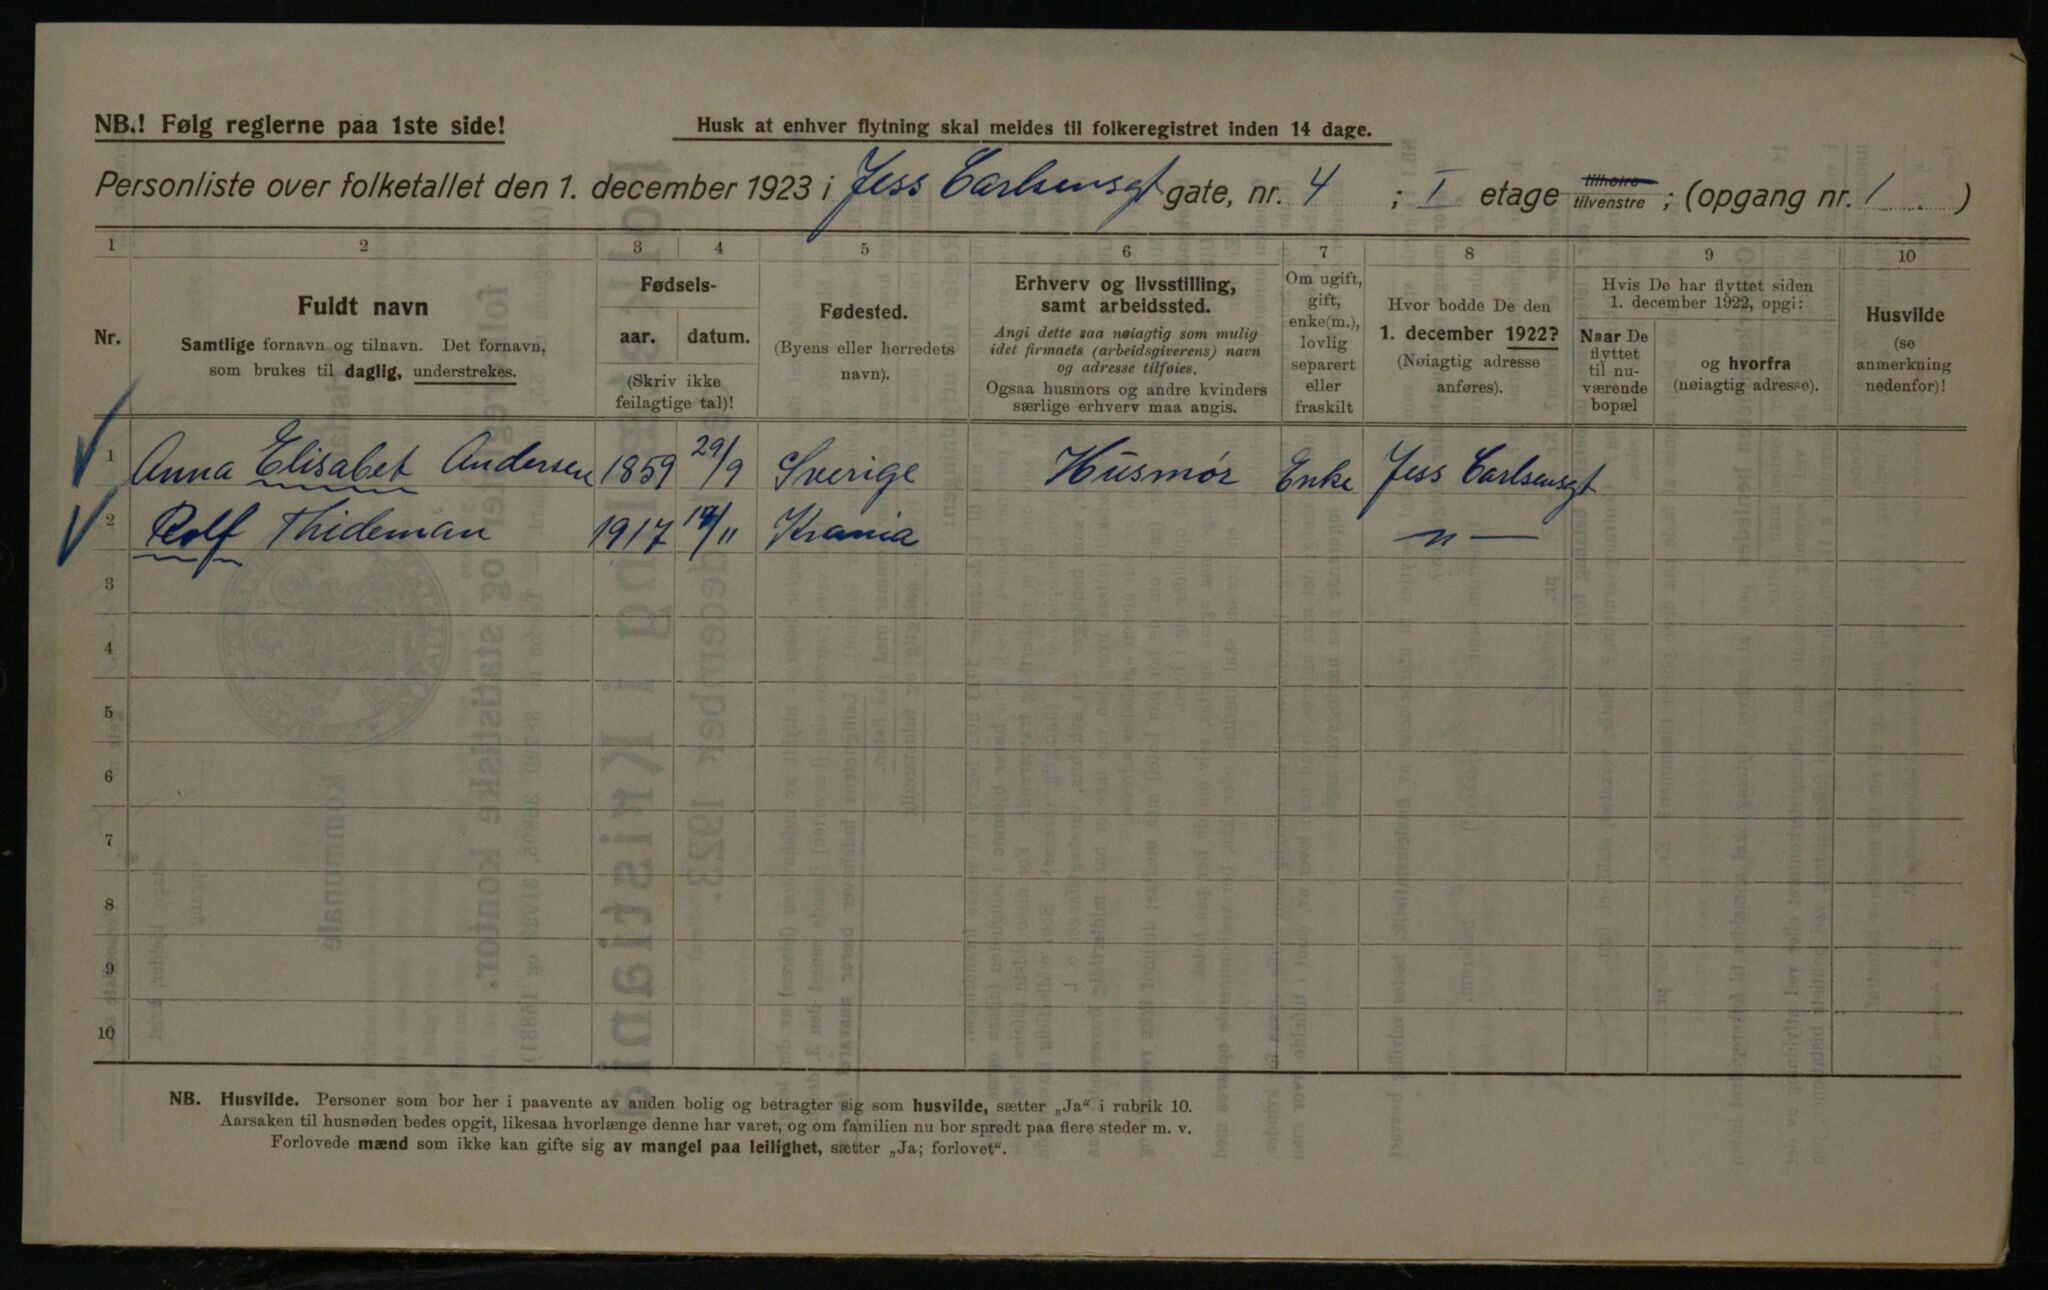 NB.! Følg reglerne paa 1ste side!
Husk at enhver flytning skal meldes til folkeregistret inden 14 dage.
Personliste over folketallet den 1. december 1923 i Jess Carlsensgt gate, nr. 4 ; I etage tilhøire tilvenstre ; (opgang nr. 1 )
1 2 3 4 5 6 7 8 9 10
Nr.
Fuldt navn
Samtlige fornavn og tilnavn. Det fornavn,
som brukes til daglig, understrekes.
Fødsels-
aar. datum.
(Skriv ikke
feilagtige tal)!
Fødested.
(Byens eller herredets
navn).
Erhverv og livsstilling,
samt arbeidssted.
Angi dette saa nøiagtig som mulig
idet firmaets (arbeidsgiverens) navn
og adresse tilføies.
Ogsaa husmors og andre kvinders
særlige erhverv maa angis.
Om ugift,
gift,
enke(m.),
lovlig
separert
eller
fraskilt
Hvor bodde De den
1. december 1922?
(Nøiagtig adresse
anføres).
Hvis De har flyttet siden
1. december 1922, opgi:
Naar De
flyttet
til nu-
værende
bopæl
og hvorfra
(nøiagtig adresse).
Husvilde
(se
anmerkning
nedenfor)!
1 Anna Elisabet Andersen 1859 29/9 Sverige Husmor Enke Jess Carlsensgt
2 Rolf Thideman 1917 /11 Krania —"—
3
4
5
6
7
8
9
10
NB. Husvilde. Personer som bor her i paavente av anden bolig og betragter sig som husvilde, sætter „Ja“ i rubrik 10.
Aarsaken til husnøden bedes opgit, likesaa hvorlænge denne har varet, og om familien nu bor spredt paa flere steder m. v.
Forlovede mænd som ikke kan gifte sig av mangel paa leilighet, sætter „Ja; forlovet“.